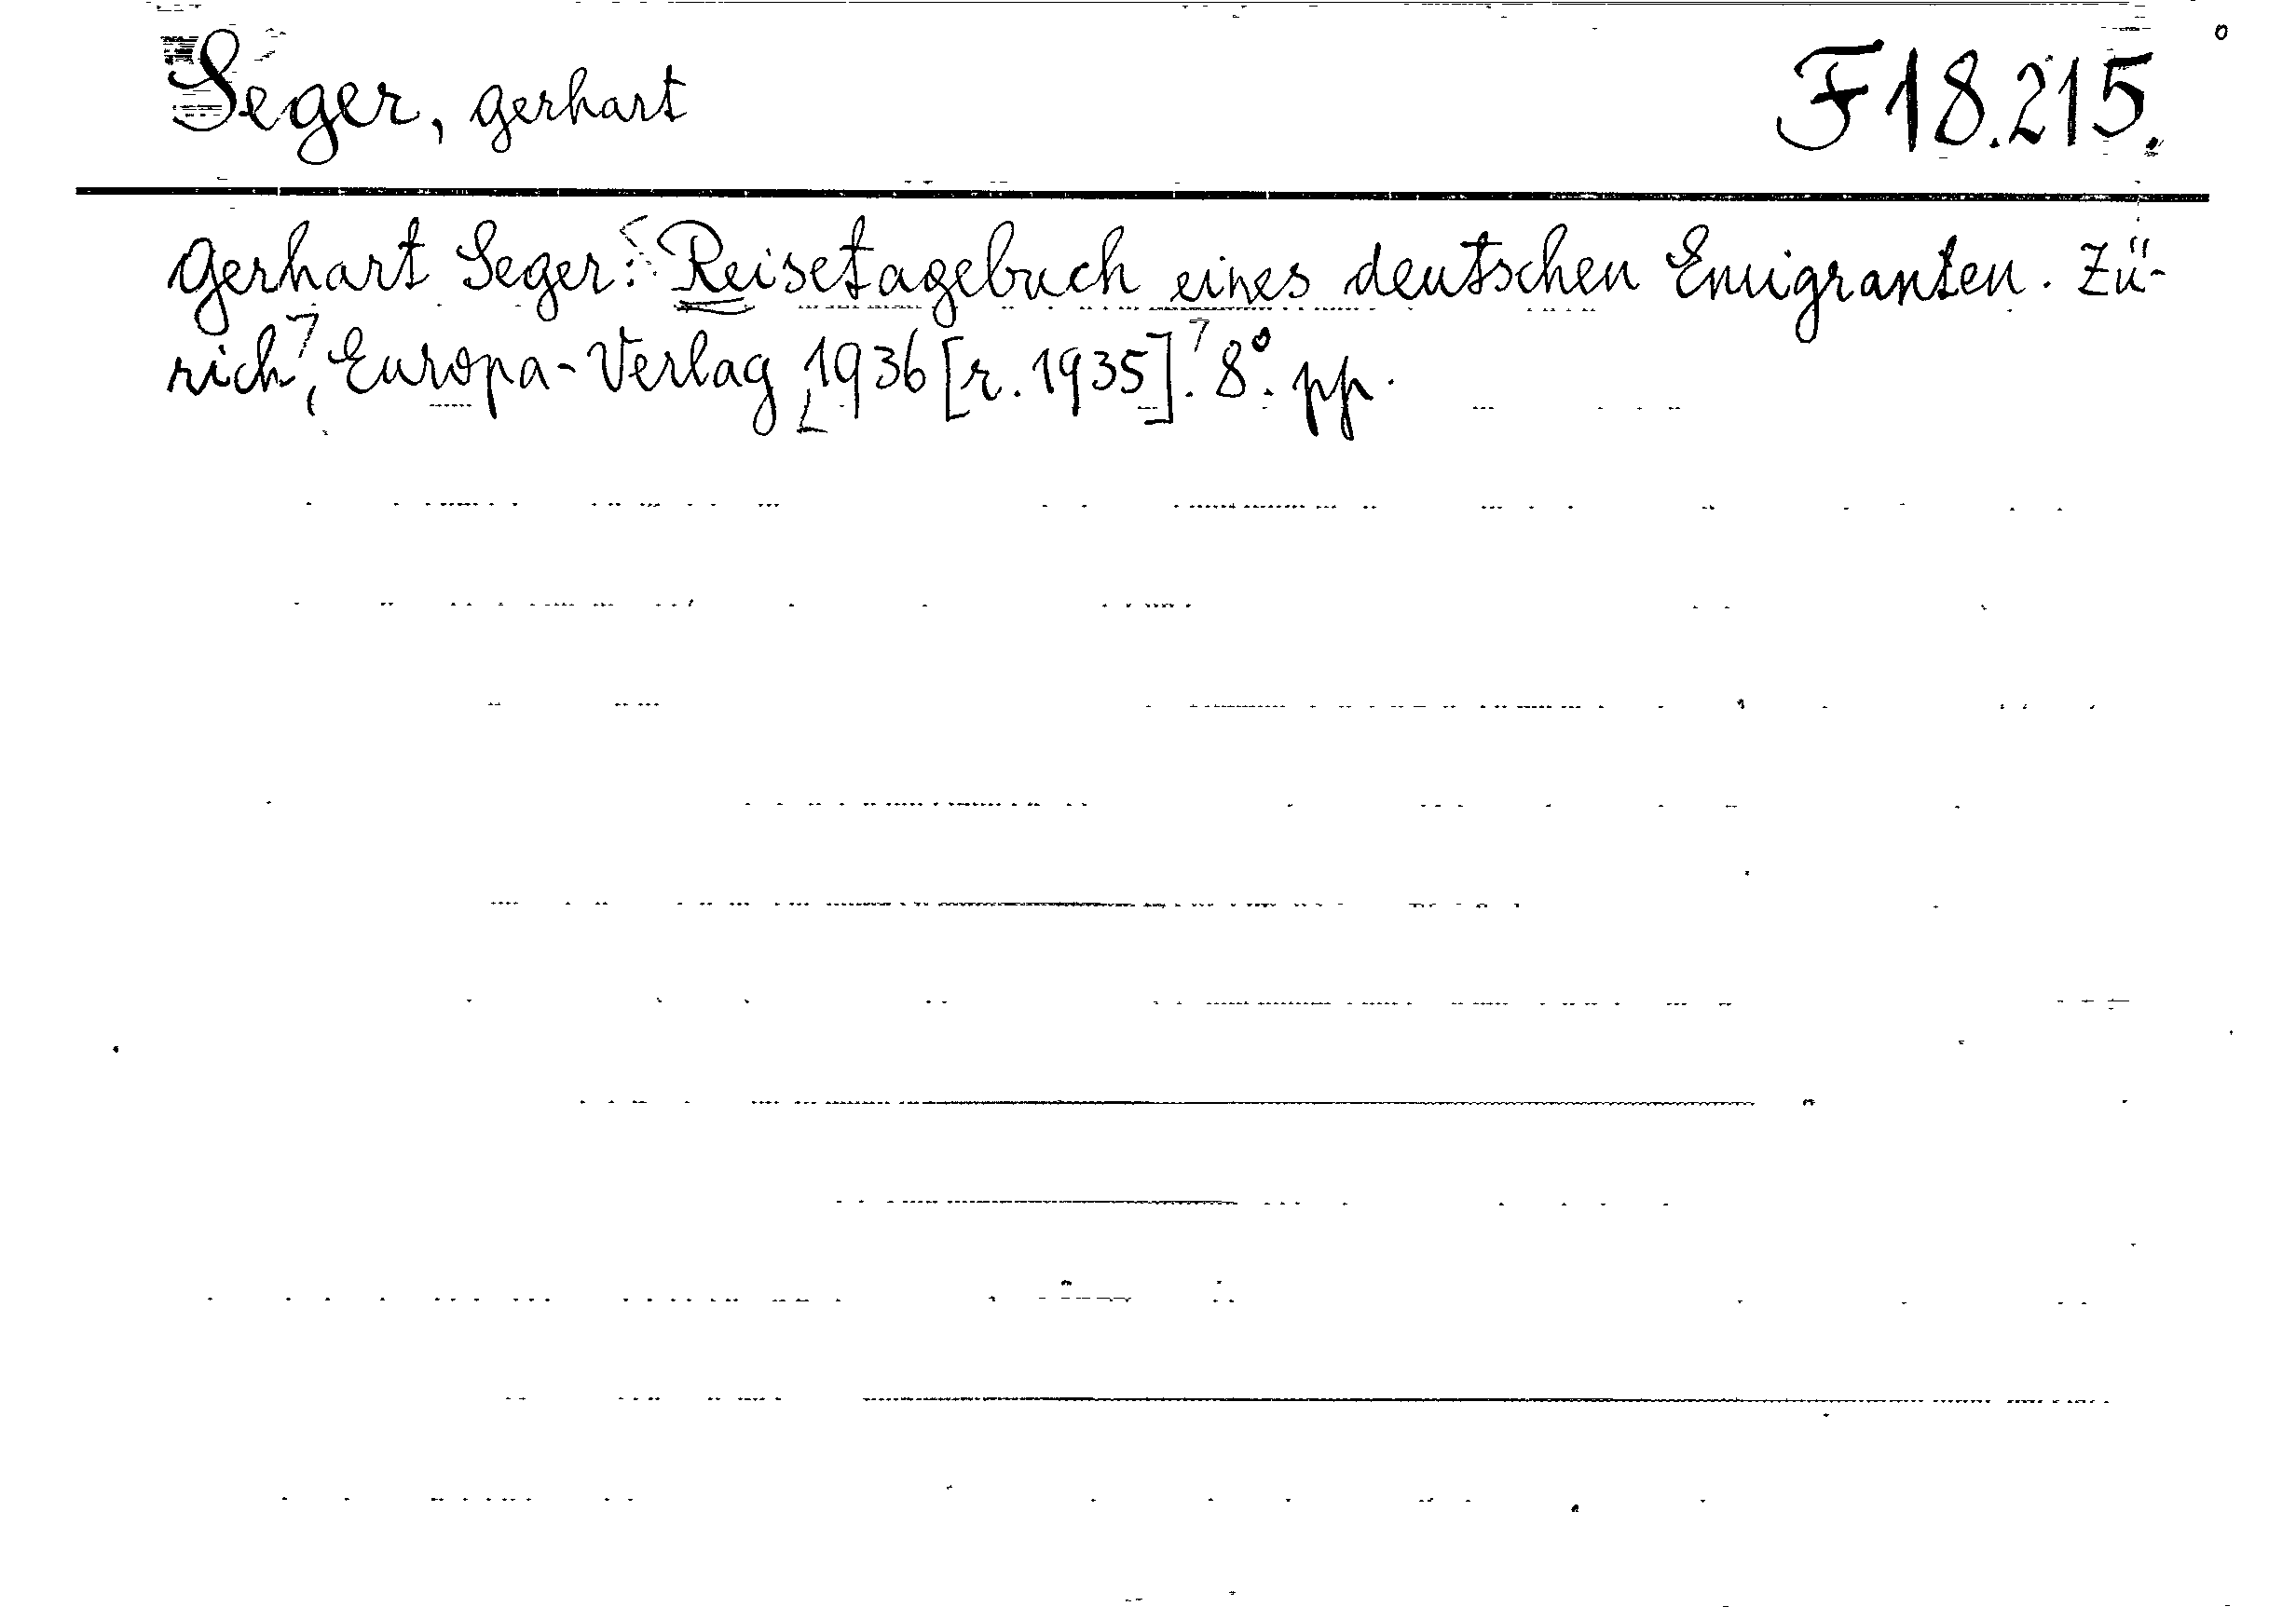 Seger, Gerhart
F 18.215.
Gerhart Seger: Reisetagebuch eines deutschen Emigranten. Zü-
rich, Europa-Verlag 1936 [r. 1935]. 8°. pp.